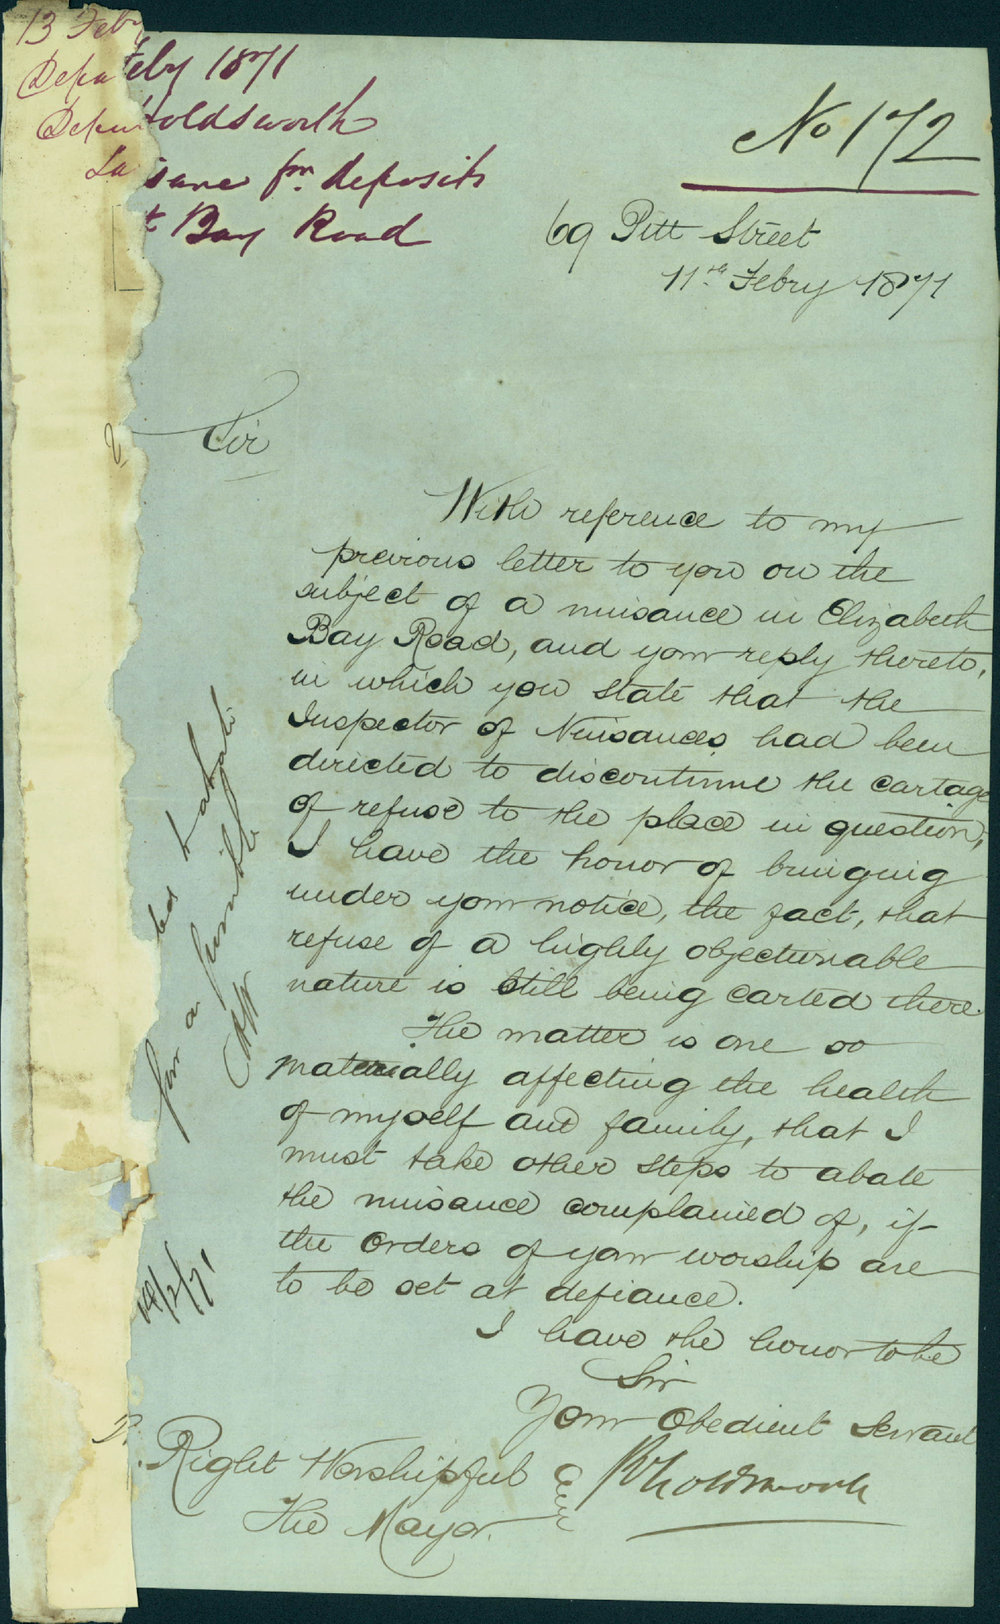 13 Feby
Feby 1871
Holdsworth
sance for deposit
Bay Road
No 172
69 Pitt Street
11th Febry 1871
Sir
With reference to my
previous letter to you on the
subject of a nuisance in Elizabeth
Bay Road, and your reply thereto,
in which you state that the
Inspector of Nuisances had been
directed to discontinue the cartage
of refuse to the place in question,
I have the honor of bringing
under your notice, the fact, that
refuse of a highly objectionable
nature is still being carted there.
The matter is one so
materially affecting the health
of myself and family, that I
must take other steps to abate
the nuisance complained of, if
the orders of your worship are
to be set at defiance.
I have the honor to be
Sir
Your Obedient Servant
Holdsworth
Right Worshipful
The Mayor.
for a
14/2/71